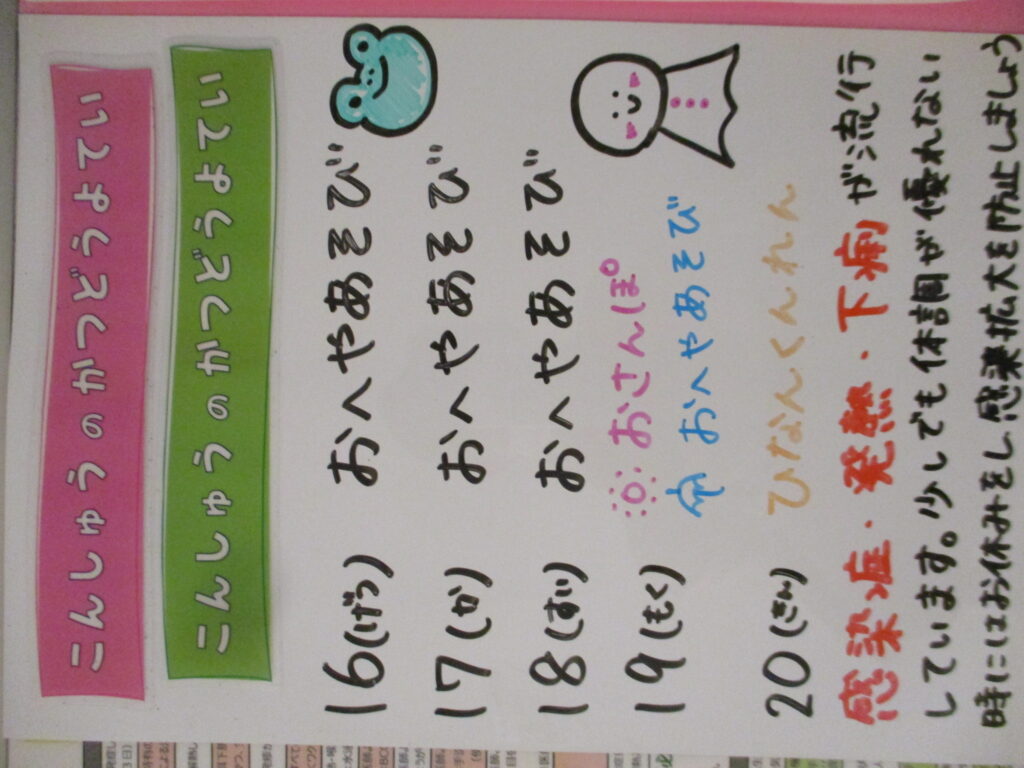 こんしゅうのかつどうよてい
こんしゅうのかつどうよてい
16(げつ) おへやあそび
17(か) おへやあそび
18(すい) おへやあそび
19(もく) おさんぽ
おへやあそび
20(きん) ひなんくんれん
感染症・発熱・下痢が流行
しています。少しでも体調が優れない
時にはお休みをし感染拡大を防止しましょう